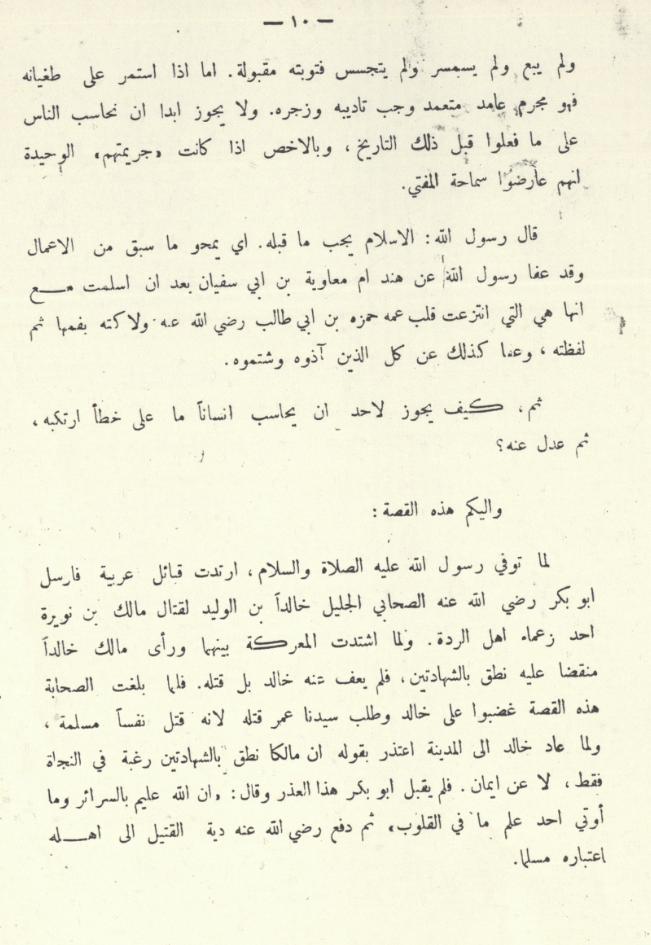 — ١٠ —
ولم يبع ولم يسمسر ولم يتجسس فتوبته مقبولة. اما اذا استمر على طغيانه
فهو مجرم عامد متعمد وجب تاديبه وزجره. ولا يجوز ابدا ان نحاسب الناس
على ما فعلوا قبل ذلك التاريخ، وبالاخص اذا كانت «جريمتهم» الوحيدة
انهم عارضوا سماحة المفتي.
قال رسول الله: الاسلام يجب ما قبله. اي يمحو ما سبق من الاعمال
وقد عفا رسول الله عن هند ام معاوية بن ابي سفيان بعد ان اسلمت مـــع
انها هي التي انتزعت قلب عمه حمزه بن ابي طالب رضي الله عنه ولاكته بفمها ثم
لفظته، وعفا كذلك عن كل الذين آذوه وشتموه.
ثم، كيف يجوز لاحد ان يحاسب انساناً ما على خطأ ارتكبه،
ثم عدل عنه؟
واليكم هذه القصة:
لما توفي رسول الله عليه الصلاة والسلام، ارتدت قبائل عربية فارسل
ابو بكر رضي الله عنه الصحابي الجليل خالداً بن الوليد لقتال مالك بن نويرة
احد زعماء اهل الردة. ولما اشتدت المعركة بينهما ورأى مالك خالداً
منقضا عليه نطق بالشهادتين، فلم يعف عنه خالد بل قتله. فلما بلغت الصحابة
هذه القصة غضبوا على خالد وطلب سيدنا عمر قتله لانه قتل نفساً مسلمة،
ولما عاد خالد الى المدينة اعتذر بقوله ان مالكا نطق بالشهادتين رغبة في النجاة
فقط، لا عن ايمان. فلم يقبل ابو بكر هذا العذر وقال: «ان الله عليم بالسرائر وما
أوتي احد علم ما في القلوب» ثم دفع رضي الله عنه دية القتيل الى اهـــله
اعتباره مسلما.